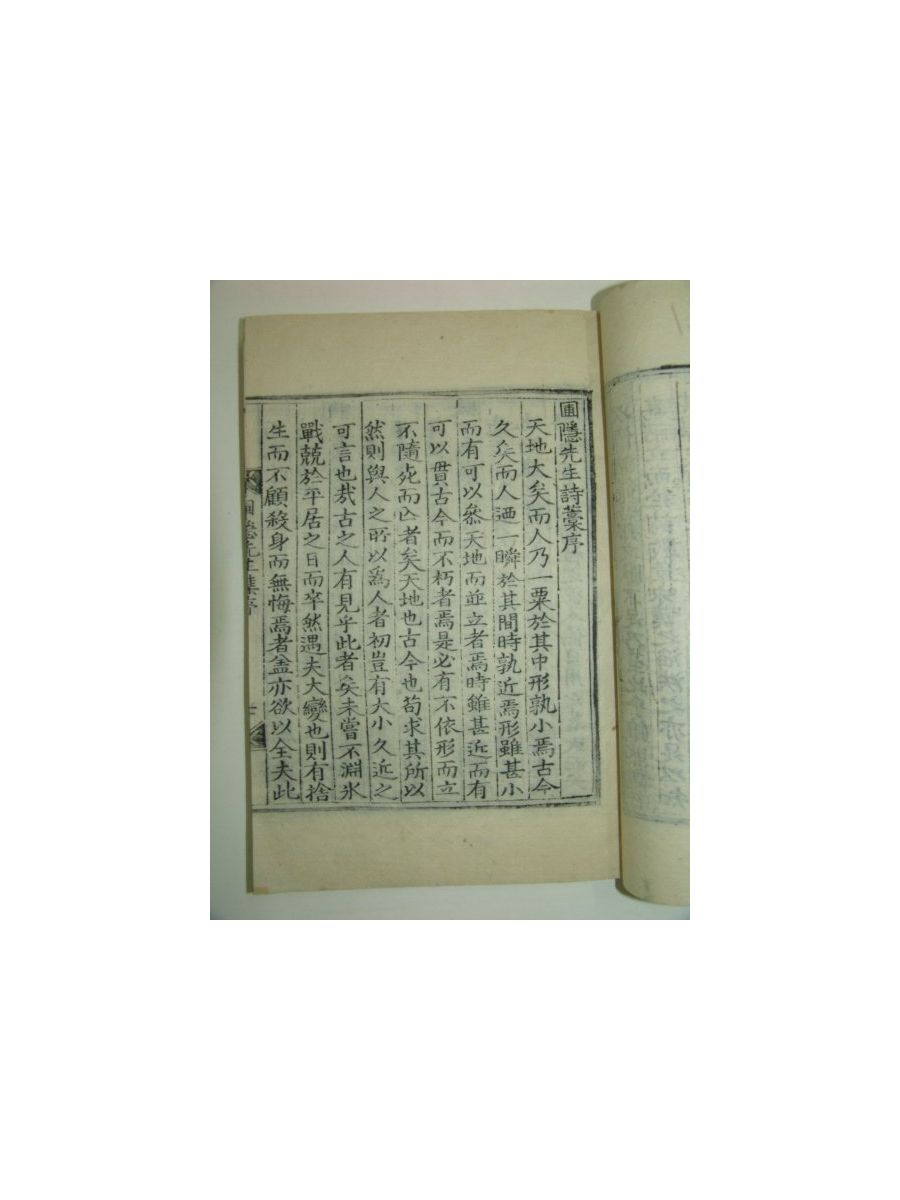 圃隱先生詩藁序
天地大矣而人乃一粟於其中形孰小焉古今
久矣而人廼一瞬於其間時孰近焉形雖甚小
而有可以叅天地而並立者焉時雖甚近而有
可以貫古今而不朽者焉是必有不依形而立
不隨死而亡者矣天地也古今也苟求其所以
然則與人之所以爲人者初豈有大小久近之
可言也㦲古之人有見乎此者矣未嘗不淵氷
戰兢於平居之日而卒然遇夫大變也則有捨
生而不顧殺身而無悔焉者盖亦欲以全夫此
圃隱先生集序